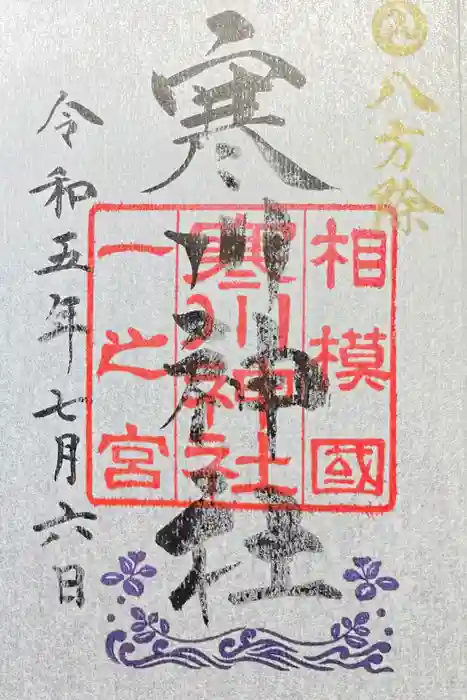 八方除
寒川神社
相模國
寒川神社
一之宮
令和五年七月六日